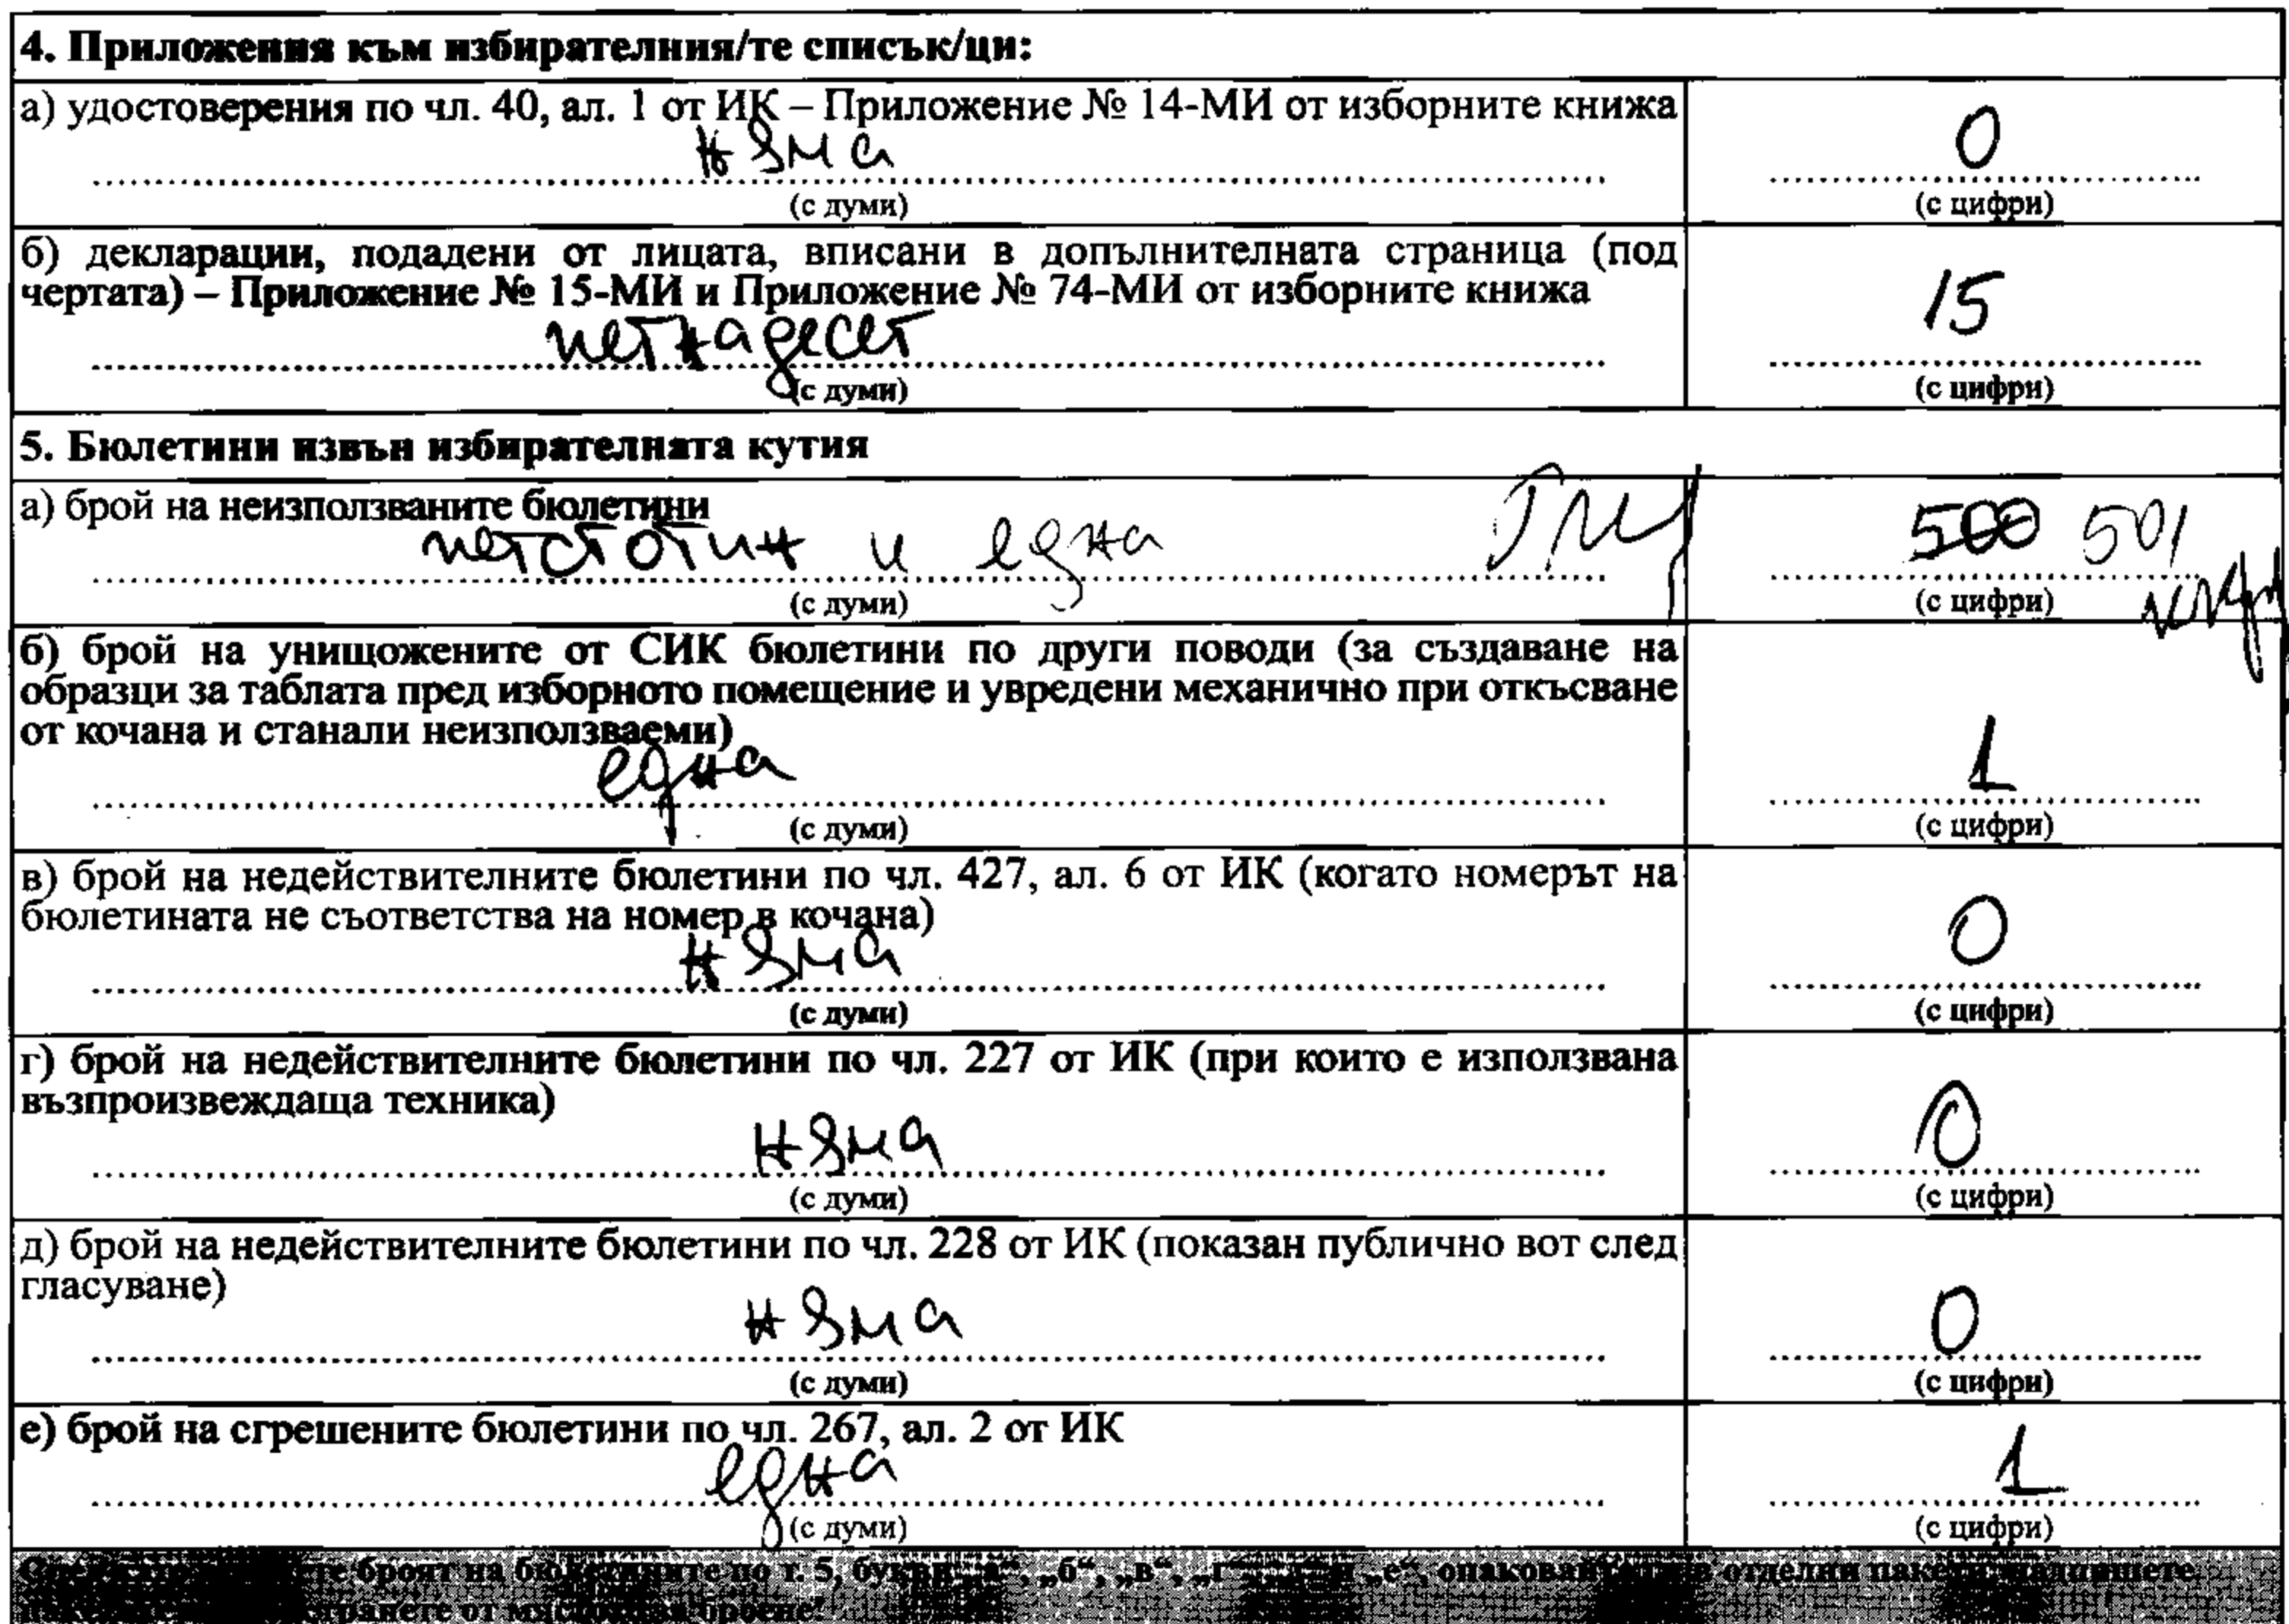 4. Приложения към избирателния/те списък/ци:
а) удостоверения по чл. 40, ал. 1 от ИК – Приложение № 14-МИ от изборните книжа
няма
0
(с думи)
(с цифри)
б) декларации, подадени от лицата, вписани в допълнителната страница (под
чертата) – Приложение № 15-МИ и Приложение № 74-МИ от изборните книжа
петнадесет
15
(с думи)
(с цифри)
5. Бюлетини извън избирателната кутия
а) брой на неизползваните бюлетини
петстотин и една
500 501
(с думи)
(с цифри)
б) брой на унищожените от СИК бюлетини по други поводи (за създаване на
образци за таблата пред изборното помещение и увредени механично при откъсване
от кочана и станали неизползваеми)
една
1
(с думи)
(с цифри)
в) брой на недействителните бюлетини по чл. 427, ал. 6 от ИК (когато номерът на
бюлетината не съответства на номер в кочана)
няма
0
(с думи)
(с цифри)
г) брой на недействителните бюлетини по чл. 227 от ИК (при които е използвана
възпроизвеждаща техника)
няма
0
(с думи)
(с цифри)
д) брой на недействителните бюлетини по чл. 228 от ИК (показан публично вот след
гласуване)
няма
0
(с думи)
(с цифри)
е) брой на сгрешените бюлетини по чл. 267, ал. 2 от ИК
една
1
(с думи)
(с цифри)
броят на бюлетините по т. 5, букви „а“, „б“, „в“, „г“, „е“, отделни пакети, надпишете
от мястото за броене!